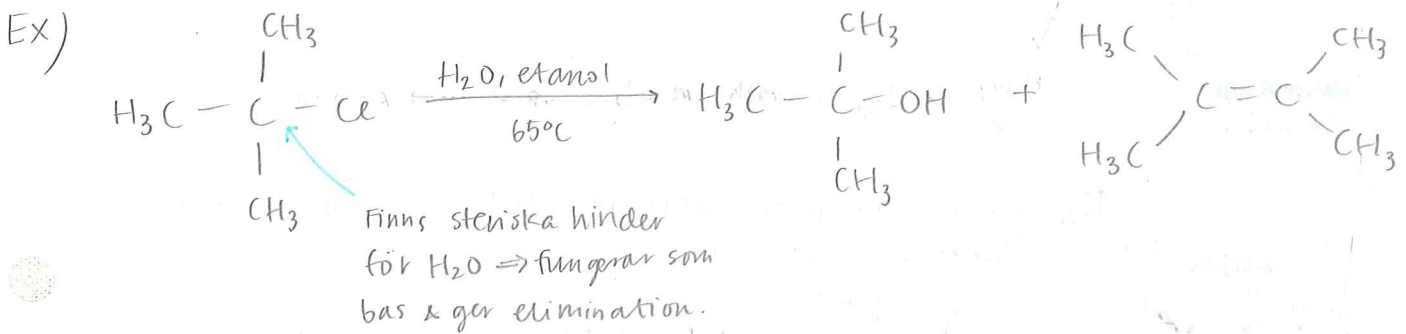 Ex)
CH3 CH3 H3C CH3
H3C - C - Cl H2O, etanol H3C - C - OH + C = C
65°C
CH3 CH3 H3C CH3
Finns steriska hinder
för H2O ⇒ fungerar som
bas & ger elimination.